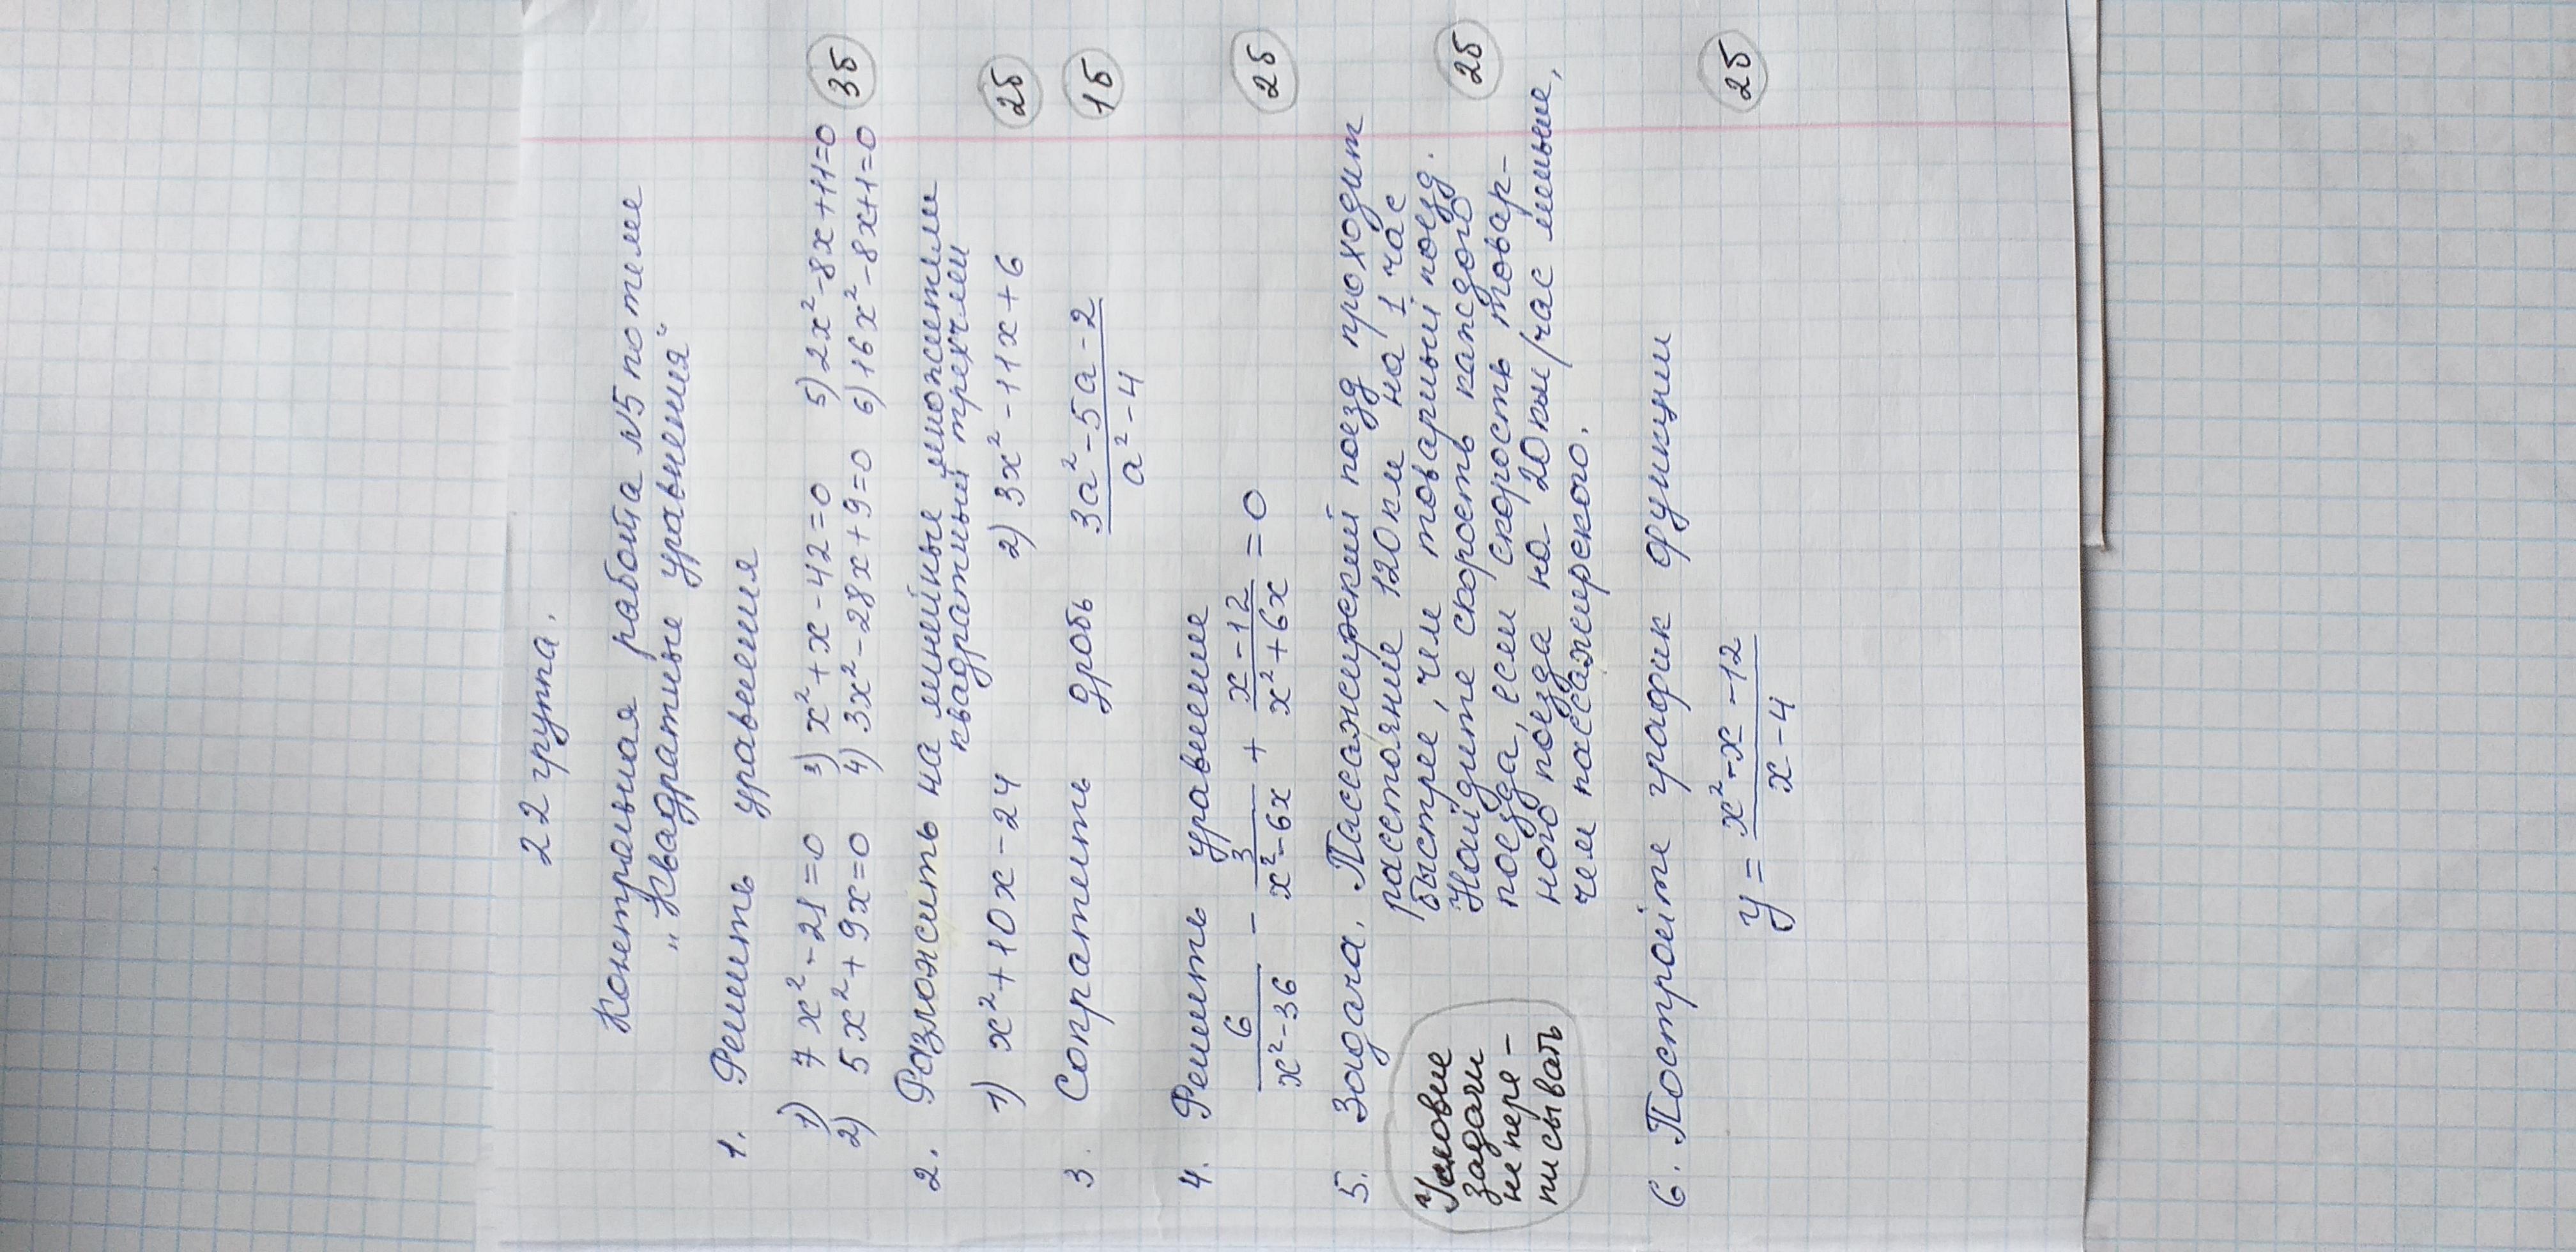 22 группа.
Контрольная работа №5 по теме
"Квадратные уравнения"
1. Решить уравнения
1) 7x² - 21 = 0 3) x² + x - 42 = 0 5) 2x² - 8x + 11 = 0 3б
2) 5x² + 9x = 0 4) 3x² - 28x + 9 = 0 6) 16x² - 8x + 1 = 0
2. Разложить на линейные множители
квадратный трехчлен
1) x² + 10x - 24 2) 3x² - 11x + 6 2б
3. Сократить дробь (3a² - 5a - 2)/(a² - 4) 1б
4. Решить уравнение
6/(x² - 36) - 3/(x² - 6x) + (x - 12)/(x² + 6x) = 0 2б
5. Задача. Пассажирский поезд проходит
расстояние 120 км на 1 час
быстрее, чем товарный поезд.
Найдите скорость каждого 2б
поезда, если скорость товар-
ного поезда на 20 км/час меньше,
чем пассажирского.
Условие
задачи
не пере-
писывать
6. Постройте график функции
y = (x² - x - 12)/(x - 4) 2б